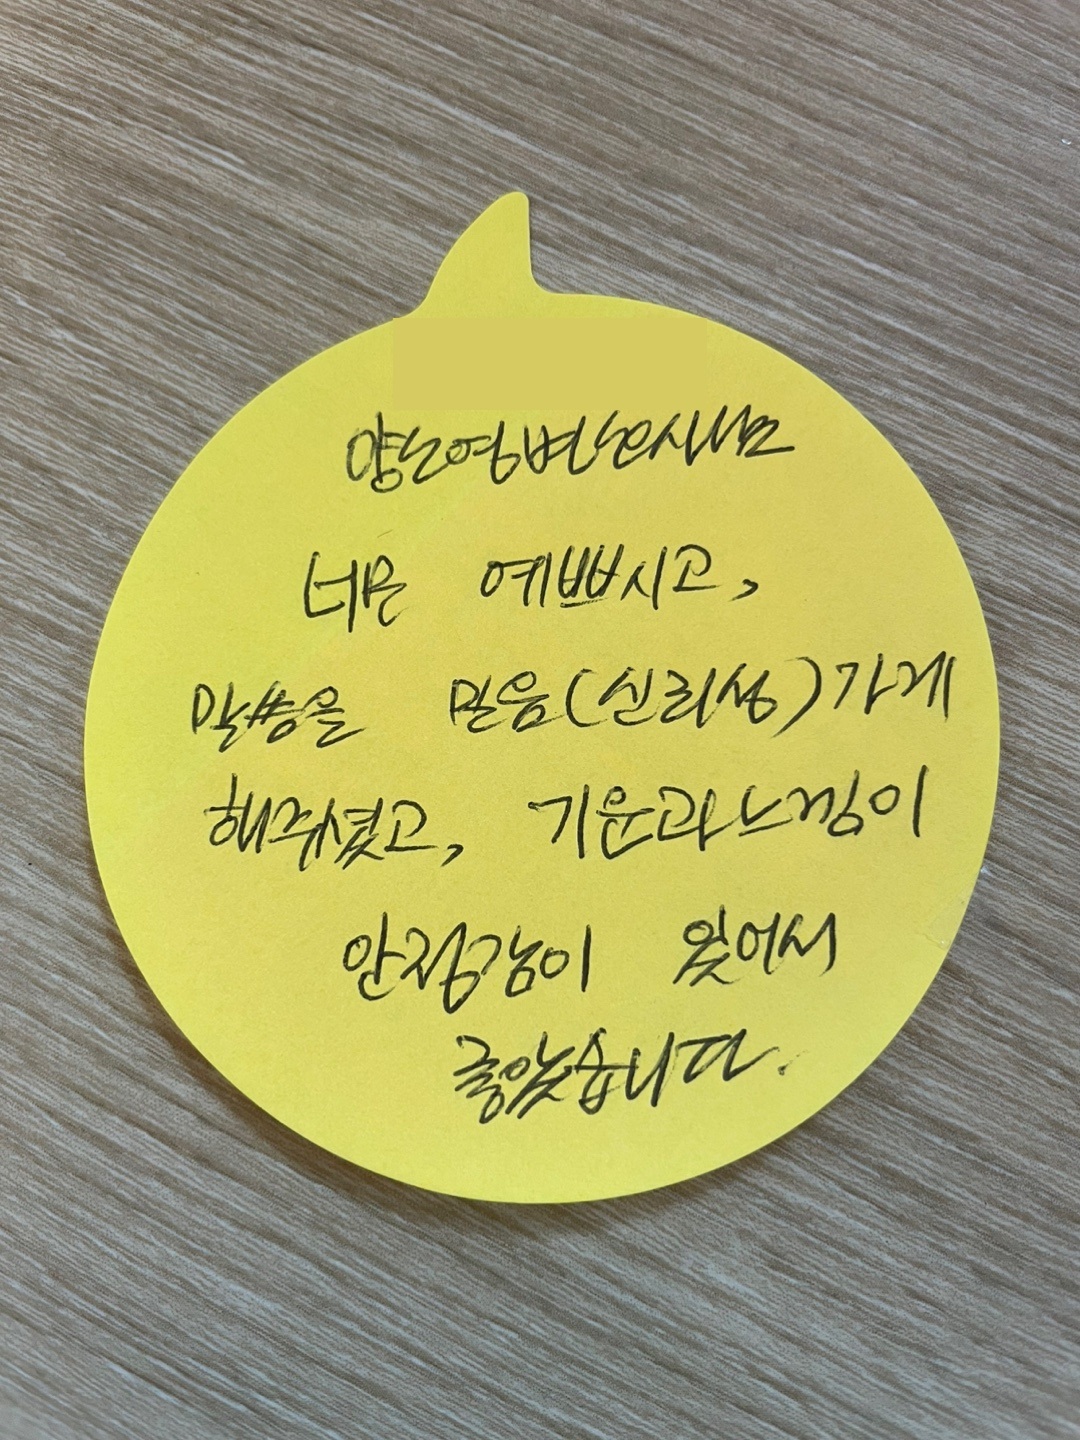 양노영변호사님은
너무 예쁘시고,
말씀을 믿음(신뢰성)가게
해주셨고, 기운과느낌이
안정감이 있어서
좋았습니다.